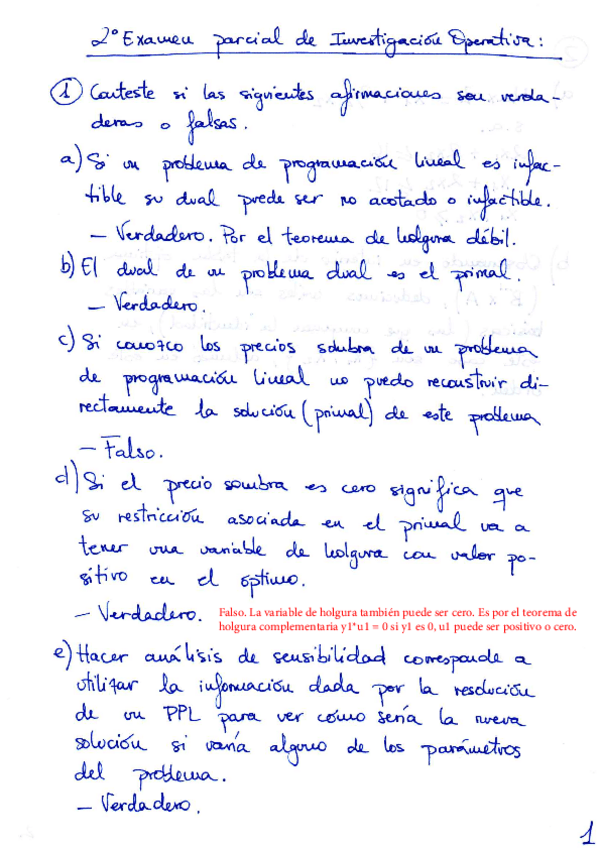 2º Examen parcial de Investigación Operativa:
① Conteste si las siguientes afirmaciones son verda-
deras o falsas.
a) Si un problema de programación lineal es infac-
tible su dual puede ser no acotado o infactible.
– Verdadero. Por el teorema de holgura débil.
b) El dual de un problema dual es el primal.
– Verdadero.
c) Si conozco los precios sombra de un problema
de programación lineal no puedo reconstruir di-
rectamente la solución (primal) de este problema
– Falso.
d) Si el precio sombra es cero significa que
su restricción asociada en el primal va a
tener una variable de holgura con valor po-
sitivo en el óptimo.
– Verdadero. Falso. La variable de holgura también puede ser cero. Es por el teorema de
holgura complementaria y1*u1 = 0 si y1 es 0, u1 puede ser positivo o cero.
e) Hacer análisis de sensibilidad corresponde a
utilizar la información dada por la resolución
de un PPL para ver cómo sería la nueva
solución si varía alguno de los parámetros
del problema.
– Verdadero.
1